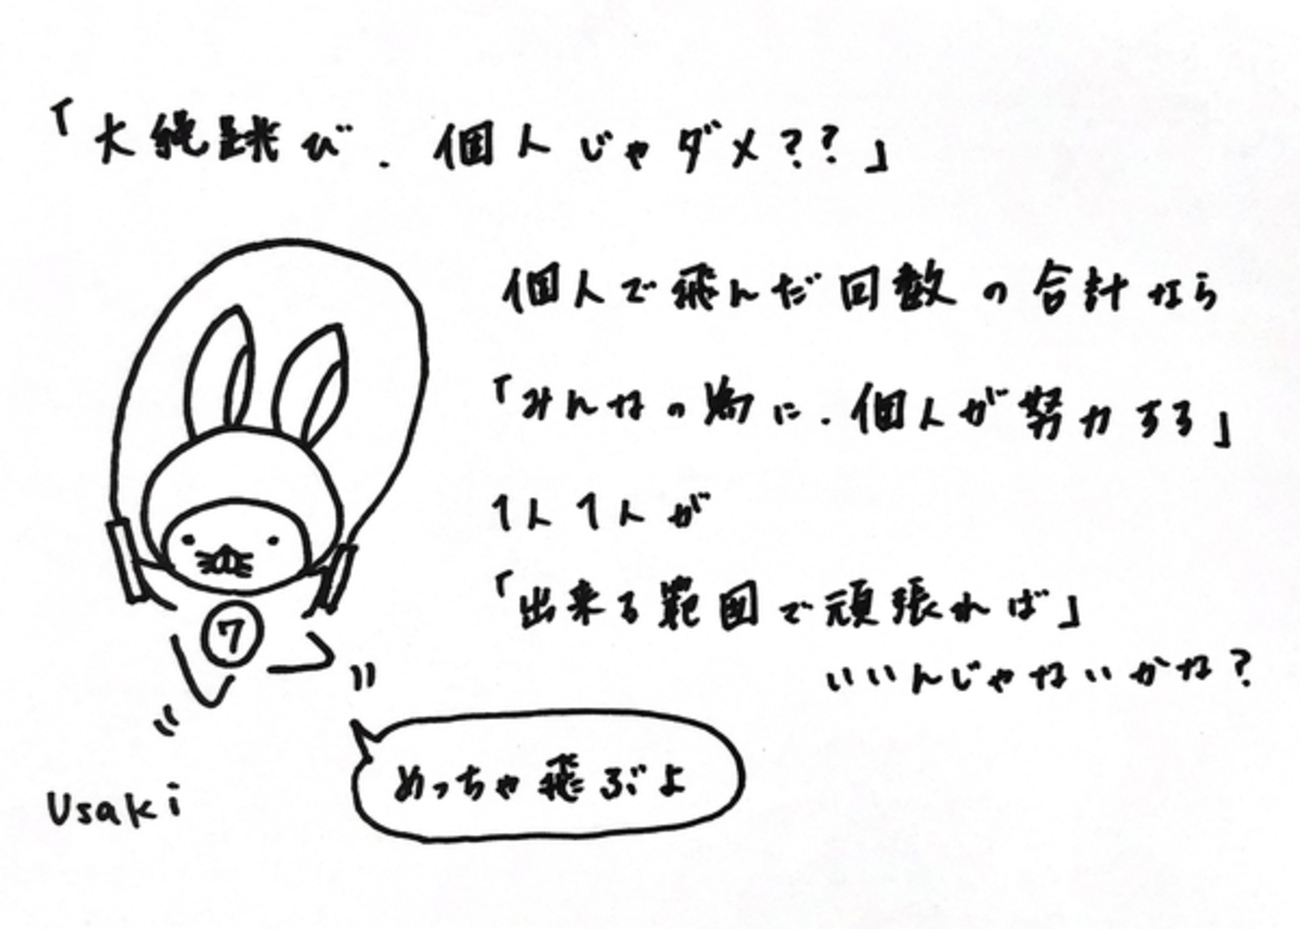 「大縄跳び、個人じゃダメ??」
個人で飛んだ回数の合計なら
「みんなの為に、個人が努力する」
1人1人が
「出来る範囲で頑張れば」
いいんじゃないかな?
7
めっちゃ飛ぶよ
Usaki